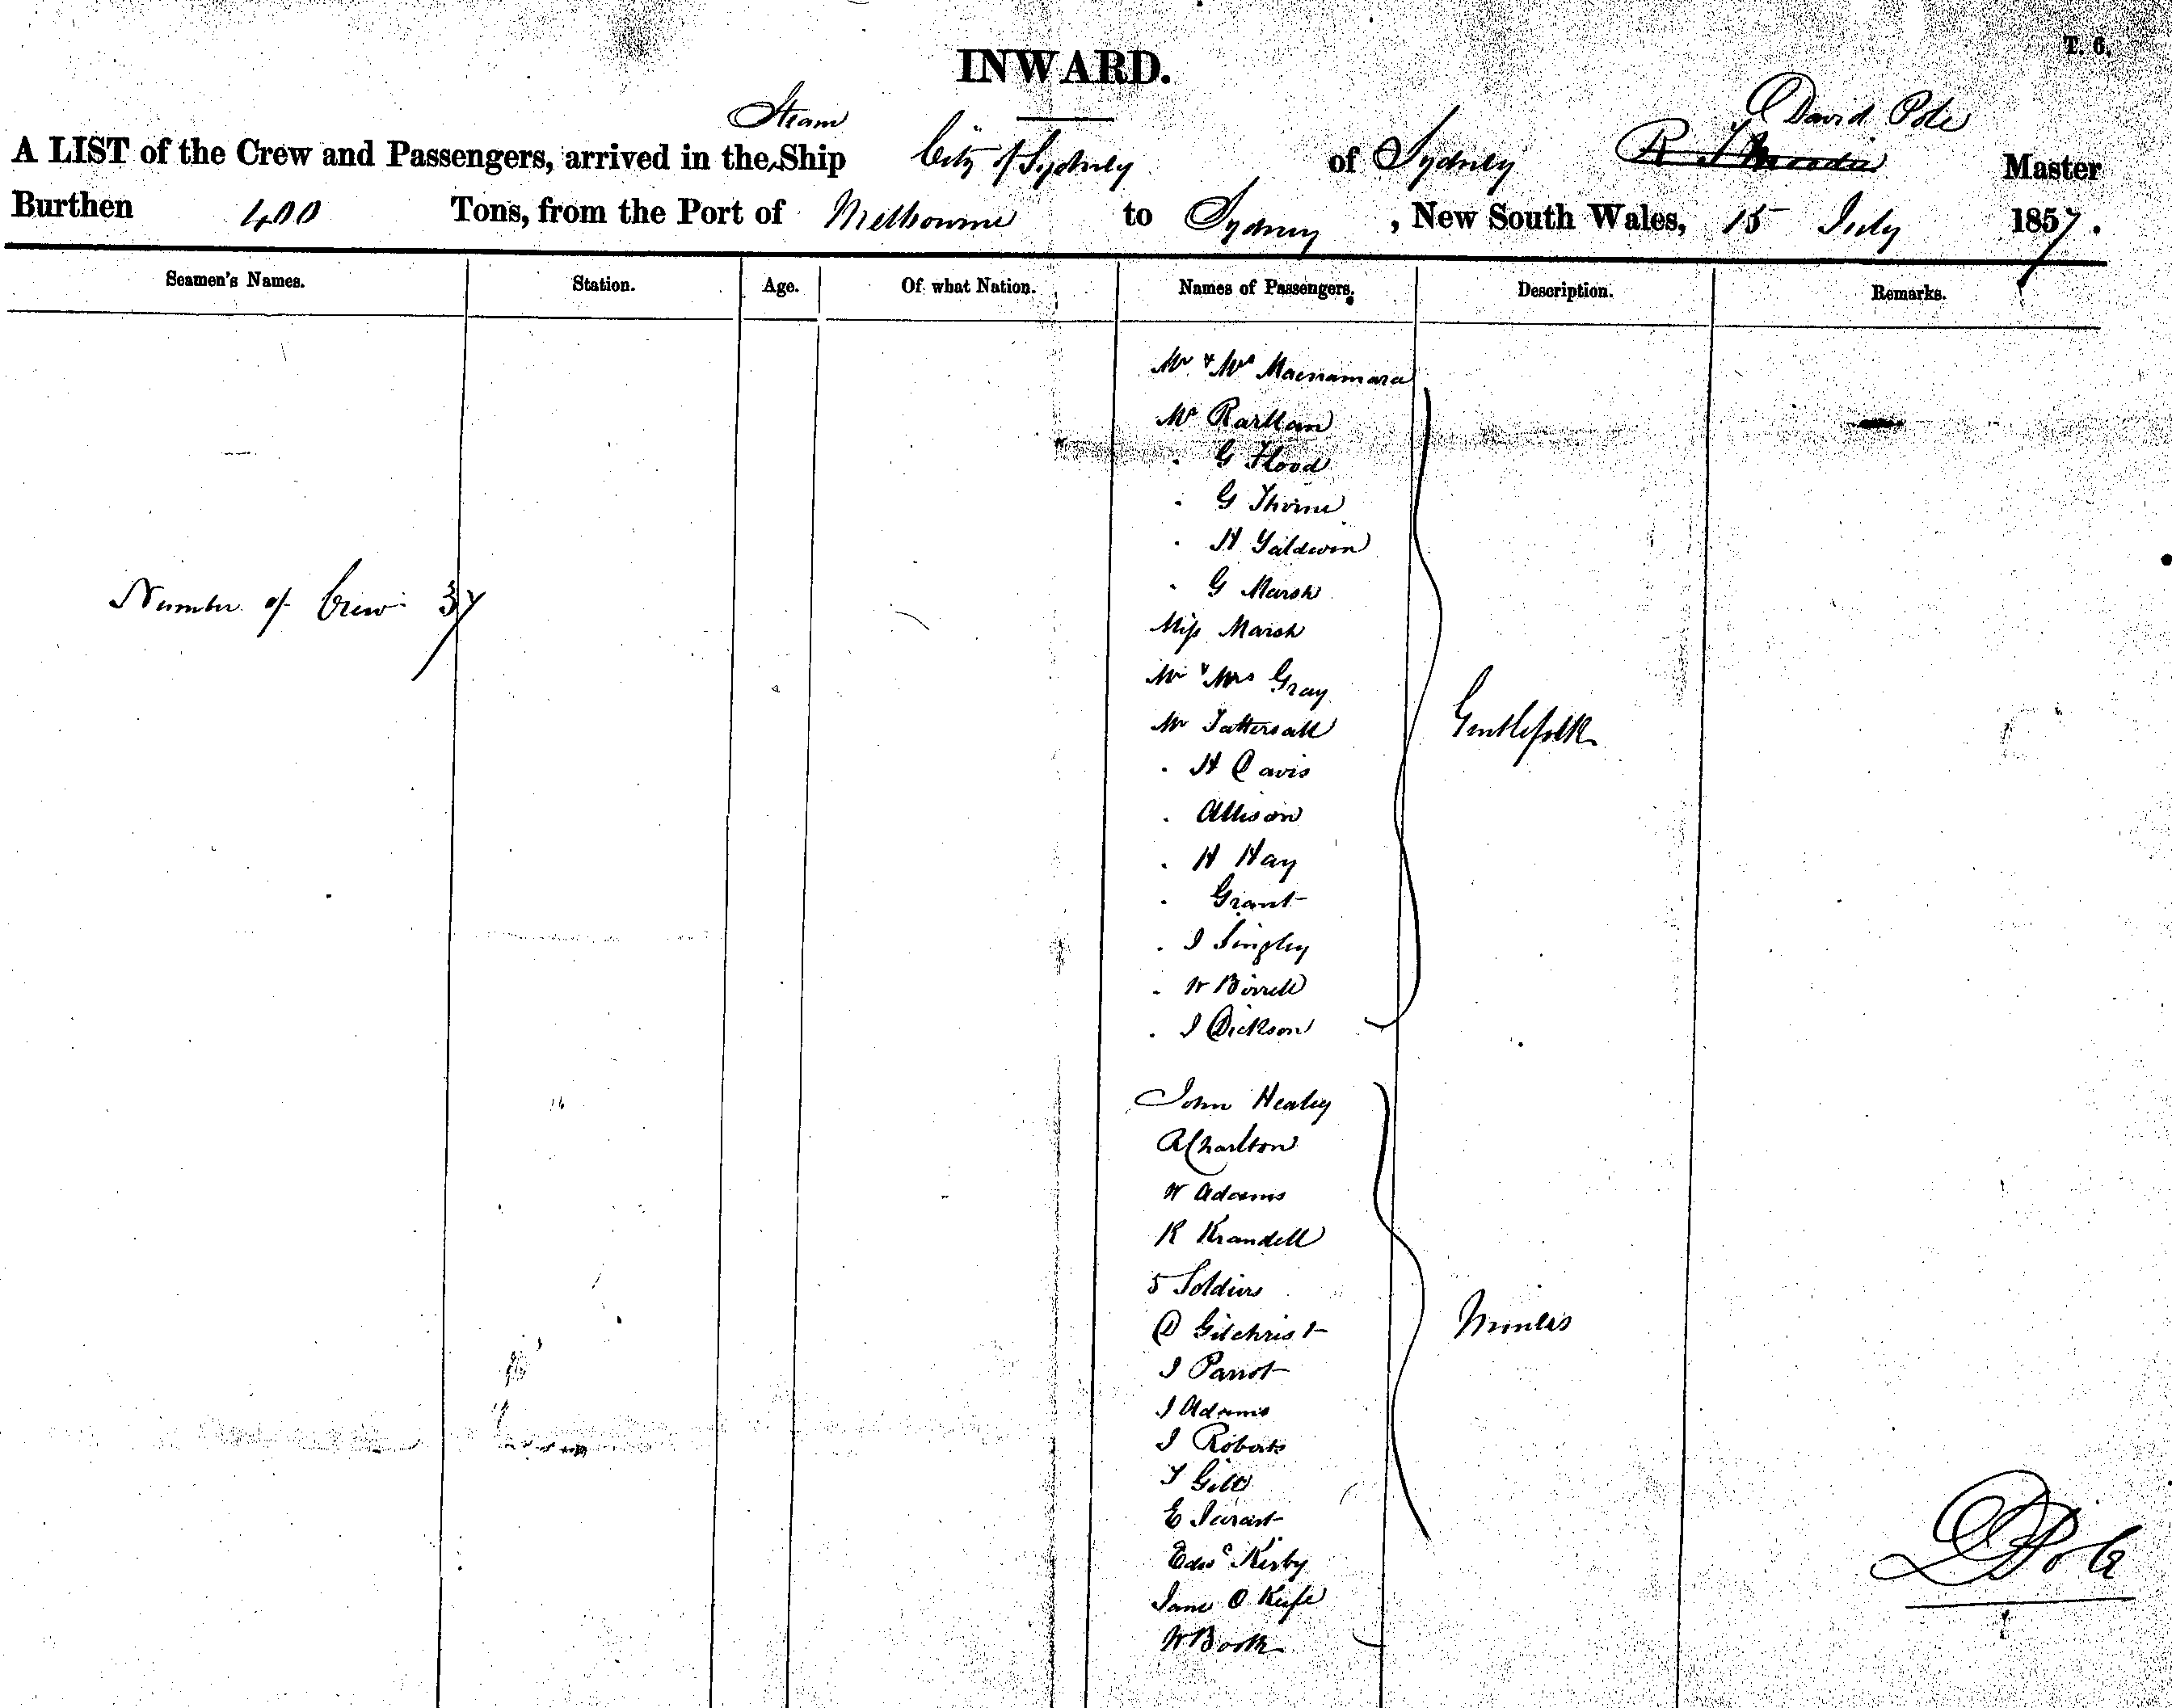 T. 6.
INWARD.
Steam David Pole
A LIST of the Crew and Passengers, arrived in the Ship City of Sydney of Sydney R T Moodie Master
Burthen 400 Tons, from the Port of Melbourne to Sydney, New South Wales, 15 July 1857.
Seamen's Names. Station. Age. Of what Nation. Names of Passengers. Description. Remarks.
Mr & Mrs Macnamara
Mr
. G Flood
. G Thorne
. H Yaldwin
Number of Crew 37 . G Marsh
Miss Marsh
Mr & Mrs Gray
Mr Tattersall Gentlefolk
. H Davis
. Allison
. H Hay
. Grant
. J Lingley
. W Birrell
. J Dickson
John Healey
R Charlton
W Adams
R Krandell
5 Soldiers
D Gilchrist Miners
J Parrot
J Adams
J Roberts
T Gill
E
Edwd Kirby
D Pole
Jane O Keefe
W Booth